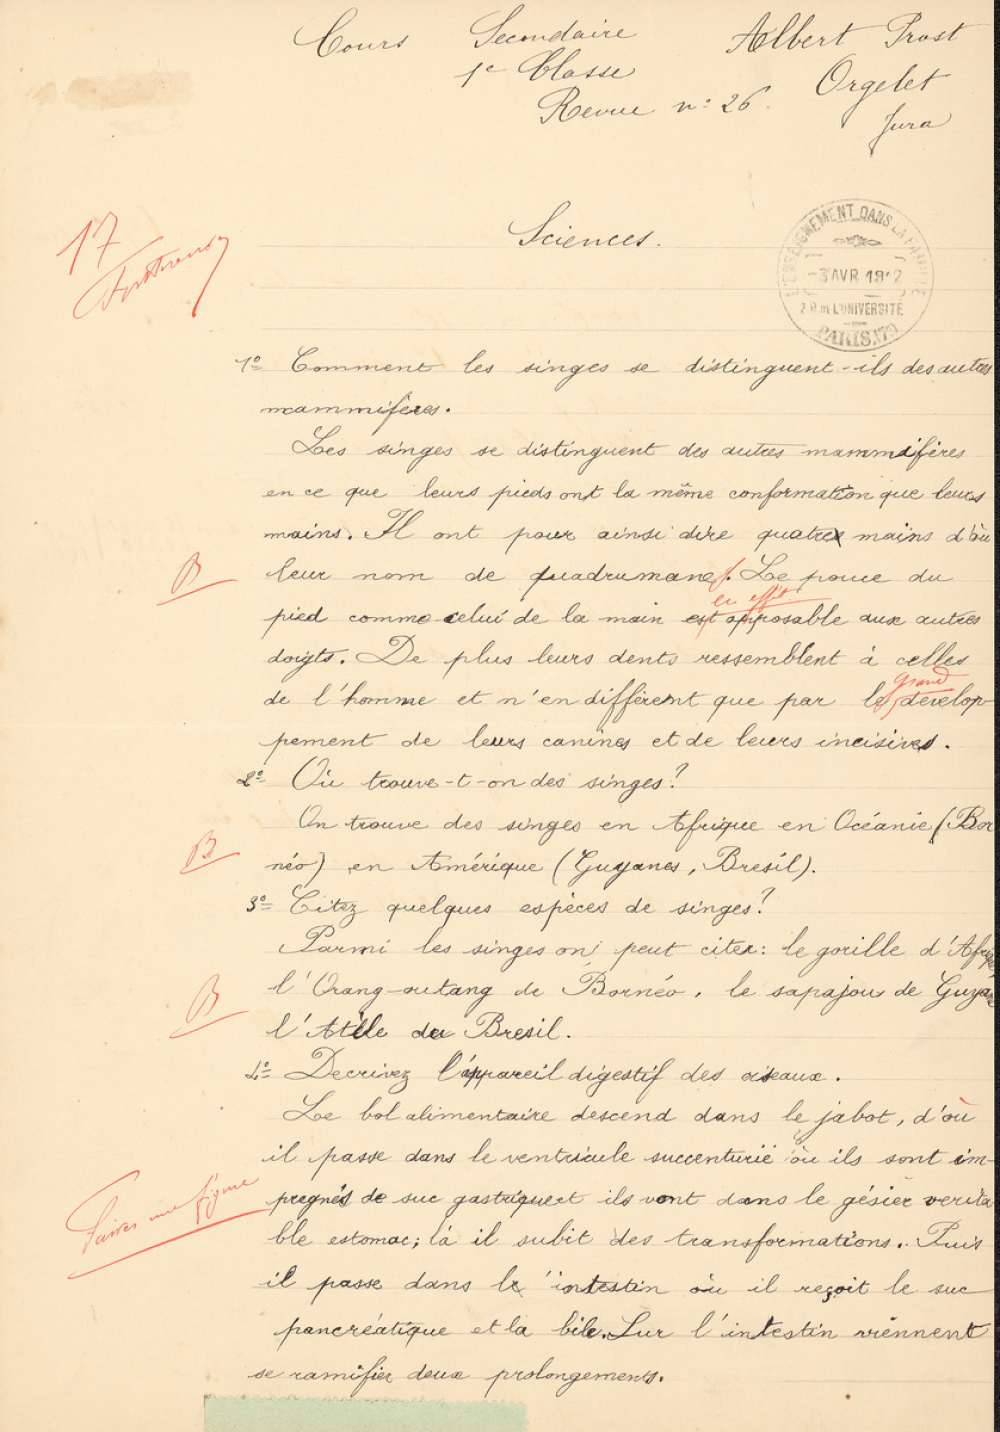 Cours Secondaire Albert Prost
1e Classe Orgelet
Revue n: 26. Jura
Sciences.
17
L'ENSEIGNEMENT DANS LA FAMILLE
3 AVR 1912
R de L'UNIVERSITÉ
PARIS.
1º Comment les singes se distinguent-ils des autres
mammifères.
Les singes se distinguent des autres mammifères
en ce que leurs pieds ont la même conformation que leurs
mains. Il ont pour ainsi dire quatre mains d'où
B
leur nom de quadrumanes. Le pouce du
en effet
pied comme celui de la main est opposable aux autres
doigts. De plus leurs dents ressemblent à celles
grand
de l'homme et n'en diffèrent que par le develop-
pement de leurs canines et de leurs incisives.
2º Où trouve-t-on des singes?
On trouve des singes en Afrique en Océanie (Bor
B
néo) en Amérique (Guyanes, Bresil).
3º Citez quelques espèces de singes?
Parmi les singes on peut citer: le gorille d'Afrique
B
l'Orang-outang de Bornéo, le sapajou de Guyane
l'Atèle du Bresil.
4º Decrivez l'appareil digestif des oiseaux.
Le bol alimentaire descend dans le jabot, d'où
il passe dans le ventricule succenturié où ils sont im-
Faites une figure
pregnés de suc gastrique et ils vont dans le gésier verita
ble estomac; là il subit des transformations. Puis
il passe dans l'intestin où il reçoit le suc
pancréatique et la bile. Sur l'intestin viennent
se ramifier deux prolongements.